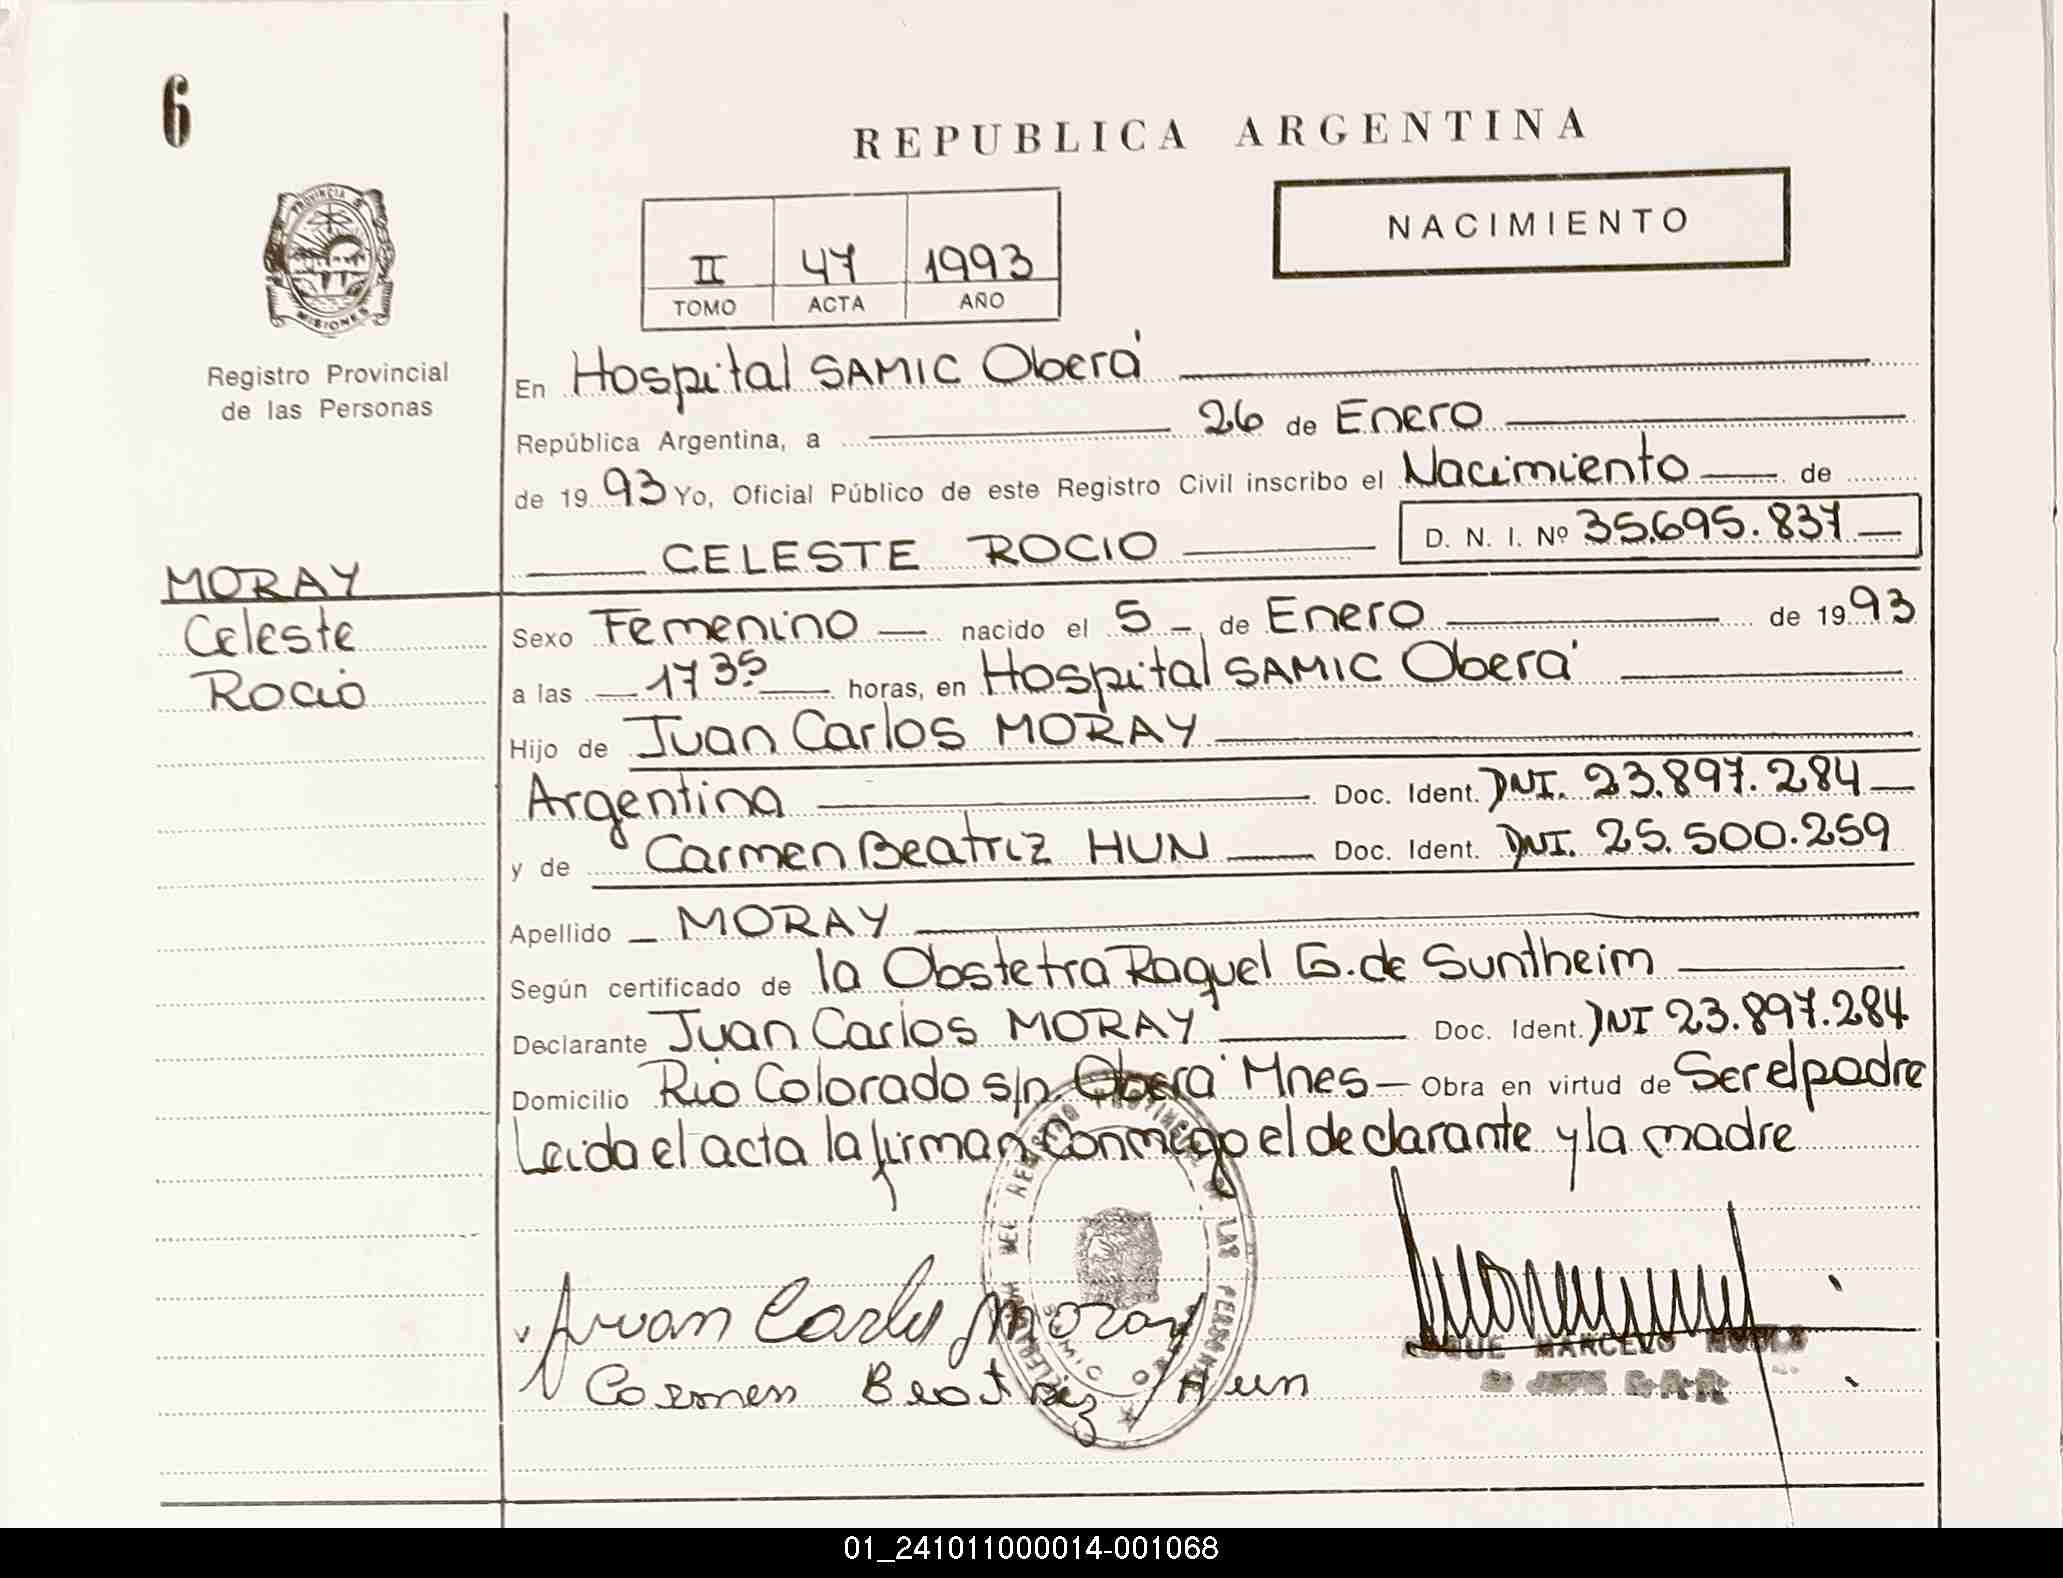 6
REPUBLICA ARGENTINA
NACIMIENTO
II 47 1993
TOMO ACTA AÑO
PROVINCIA DE
MISIONES
Registro Provincial
de las Personas
En Hospital SAMIC Oberá
República Argentina, a 26 de Enero
de 1993 Yo, Oficial Público de este Registro Civil inscribo el Nacimiento de
CELESTE ROCIO D. N. I. Nº 35.695.837
MORAY
Celeste
Rocio
Sexo Femenino nacido el 5 de Enero de 1993
a las 17 35 horas, en Hospital SAMIC Oberá
Hijo de Juan Carlos MORAY
Argentina Doc. Ident. DNI. 23.897.284
y de Carmen Beatriz HUN Doc. Ident. DNI. 25.500.259
Apellido MORAY
Según certificado de la Obstetra Raquel G. de Suntheim
Declarante Juan Carlos MORAY Doc. Ident. DNI 23.897.284
Domicilio Rio Colorado s/n. Oberá Mnes Obra en virtud de Ser el padre
Leida el acta la firman conmigo el declarante y la madre
DEL REGISTRO PROVINCIAL DE LAS PERSONAS
SAMIC
Juan Carlos Moray
Carmen Beatriz Hun
ROQUE MARCELO
01_241011000014-001068